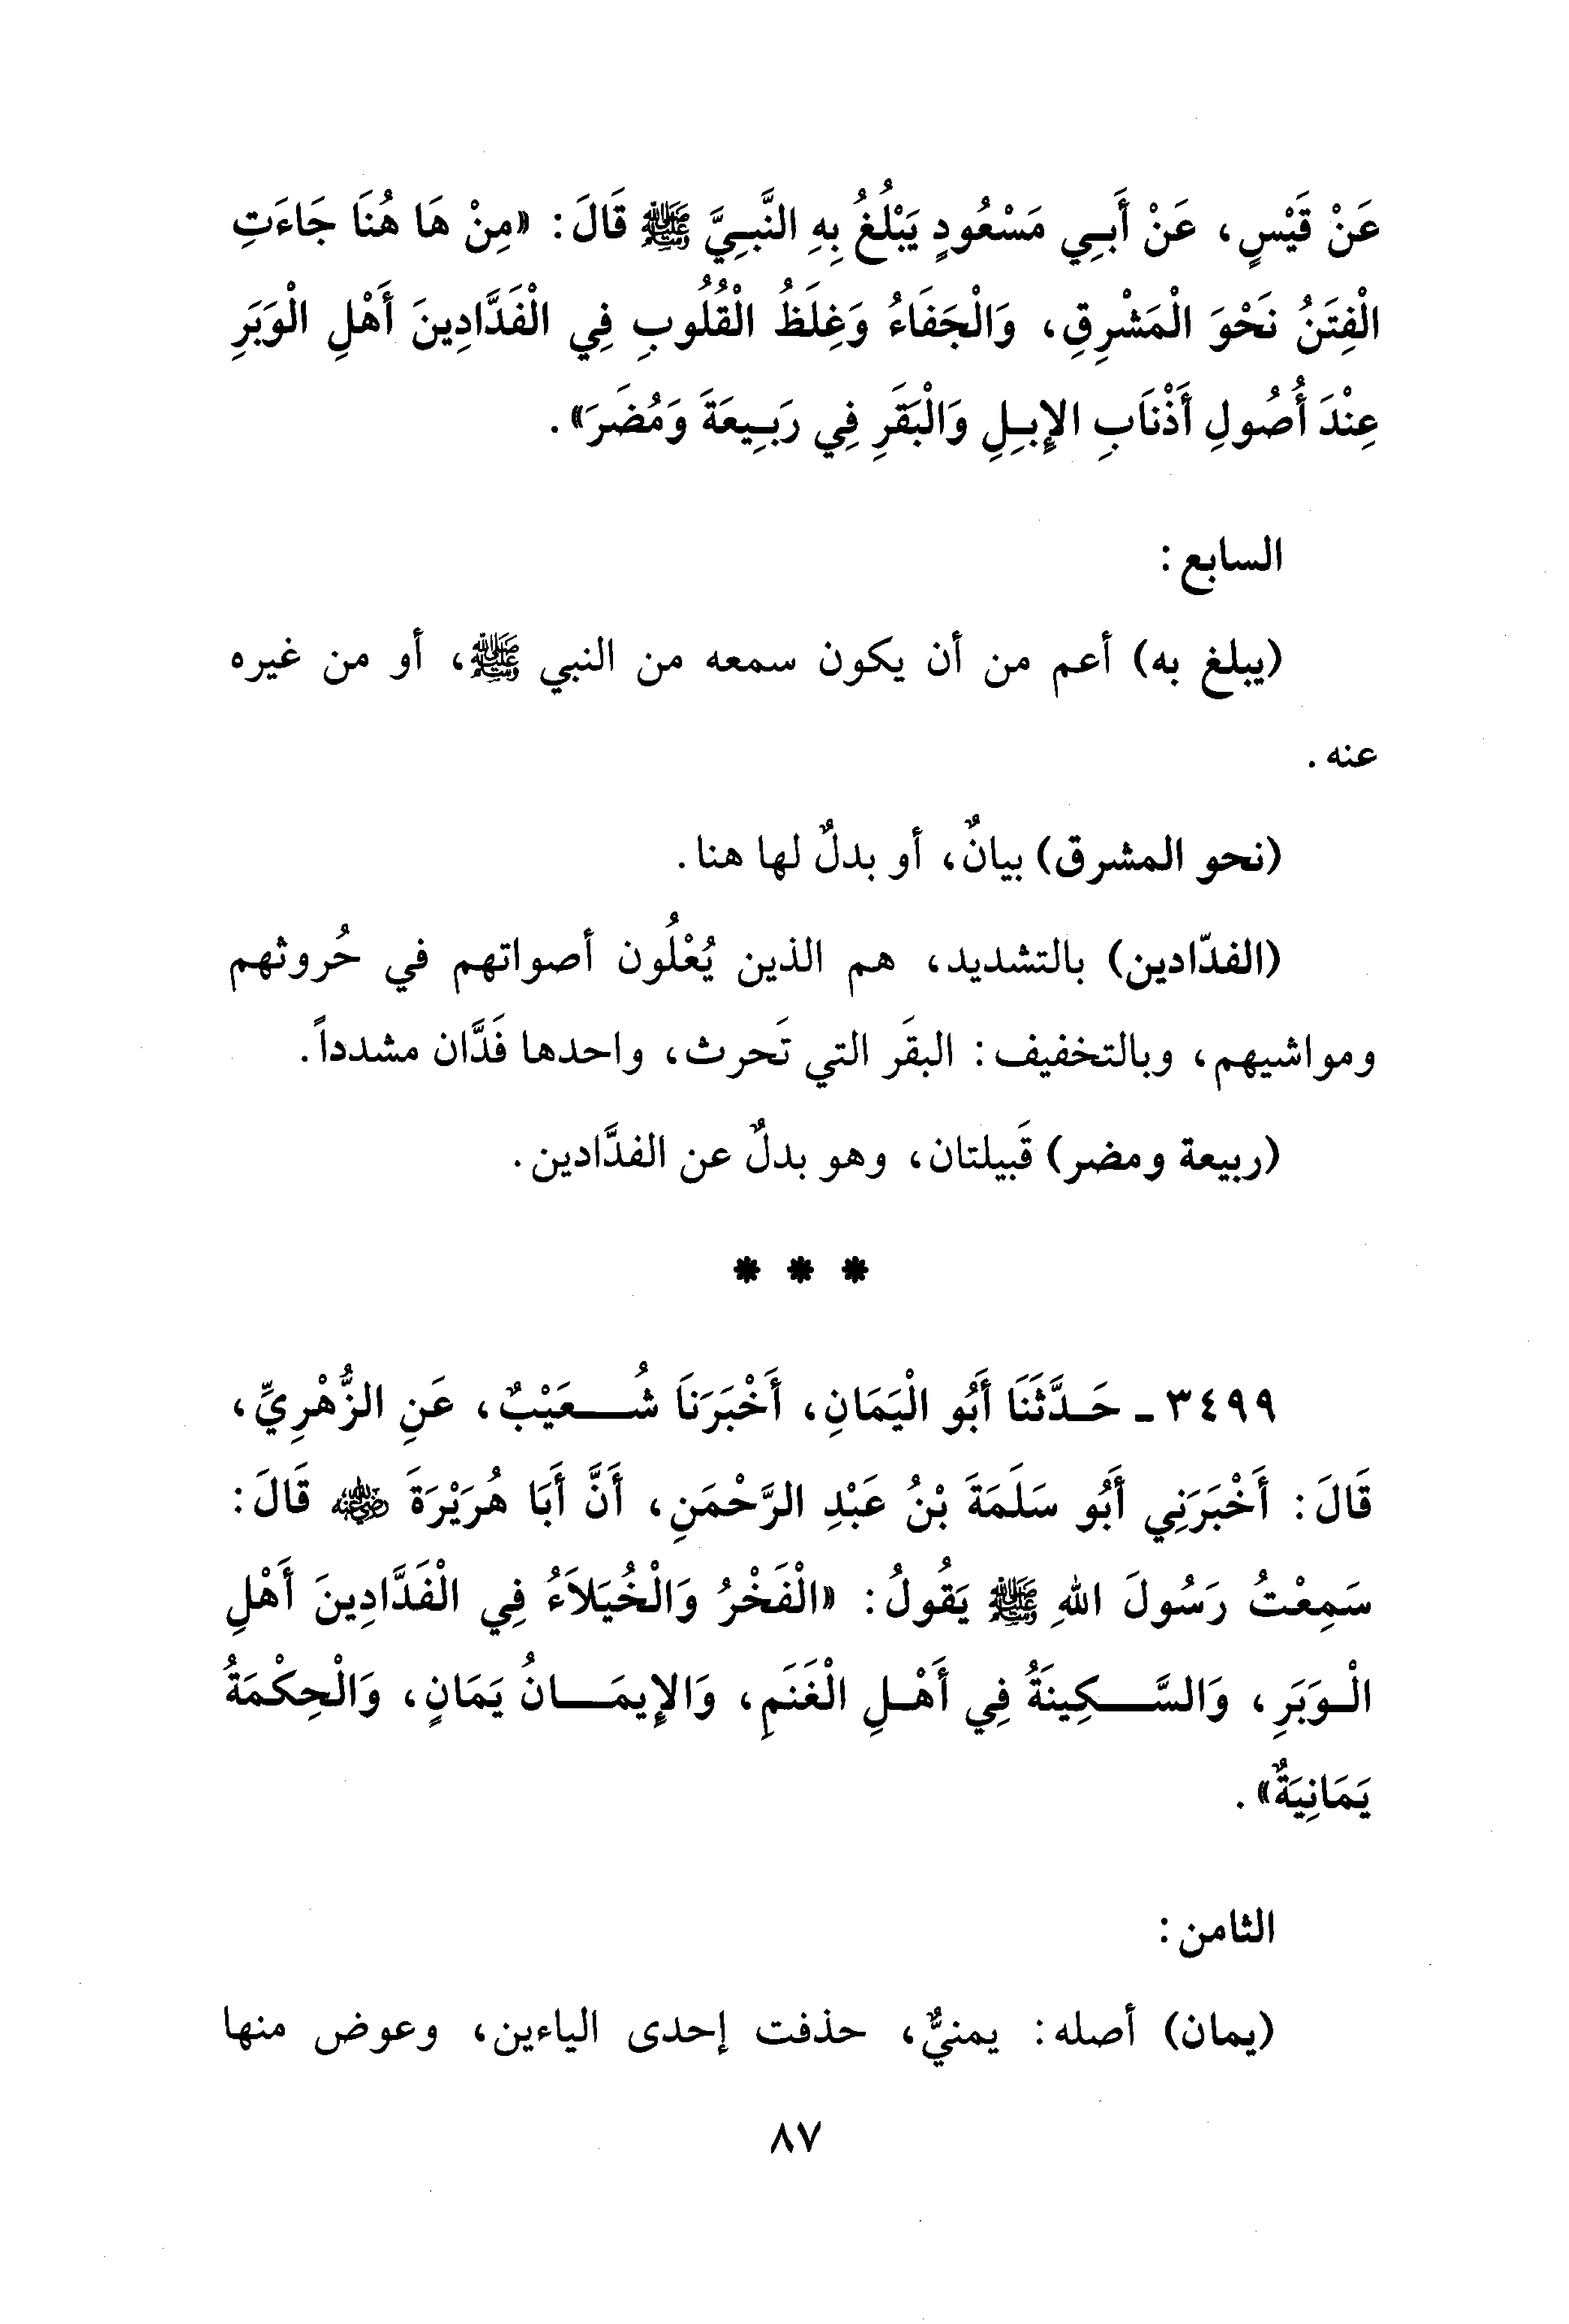 عَنْ قَيْسٍ، عَنْ أَبِي مَسْعُودٍ يَبْلُغُ بِهِ النَّبِيَّ ﷺ قَالَ: «مِنْ هَا هُنَا جَاءَتِ
الْفِتَنُ نَحْوَ الْمَشْرِقِ، وَالْجَفَاءُ وَغِلَظُ الْقُلُوبِ فِي الْفَدَّادِينَ أَهْلِ الْوَبَرِ
عِنْدَ أُصُولِ أَذْنَابِ الإِبِلِ وَالْبَقَرِ فِي رَبِيعَةَ وَمُضَرَ».
السابع:
(يبلغ به) أعم من أن يكون سمعه من النبي ﷺ، أو من غيره
عنه.
(نحو المشرق) بيانٌ، أو بدلٌ لها هنا.
(الفدّادين) بالتشديد، هم الذين يُعْلُون أصواتهم في حُروثهم
ومواشيهم، وبالتخفيف: البقَر التي تَحرث، واحدها فَدَّان مشدداً.
(ربيعة ومضر) قَبيلتان، وهو بدلٌ عن الفدَّادين.
* * *
٣٤٩٩ - حَدَّثَنَا أَبُو الْيَمَانِ، أَخْبَرَنَا شُعَيْبٌ، عَنِ الزُّهْرِيِّ،
قَالَ: أَخْبَرَنِي أَبُو سَلَمَةَ بْنُ عَبْدِ الرَّحْمَنِ، أَنَّ أَبَا هُرَيْرَةَ رضي الله عنه قَالَ:
سَمِعْتُ رَسُولَ اللهِ ﷺ يَقُولُ: «الْفَخْرُ وَالْخُيَلاَءُ فِي الْفَدَّادِينَ أَهْلِ
الْوَبَرِ، وَالسَّكِينَةُ فِي أَهْلِ الْغَنَمِ، وَالإِيمَانُ يَمَانٍ، وَالْحِكْمَةُ
يَمَانِيَةٌ».
الثامن:
(يمان) أصله: يمنيٌّ، حذفت إحدى الياءين، وعوض منها
٨٧